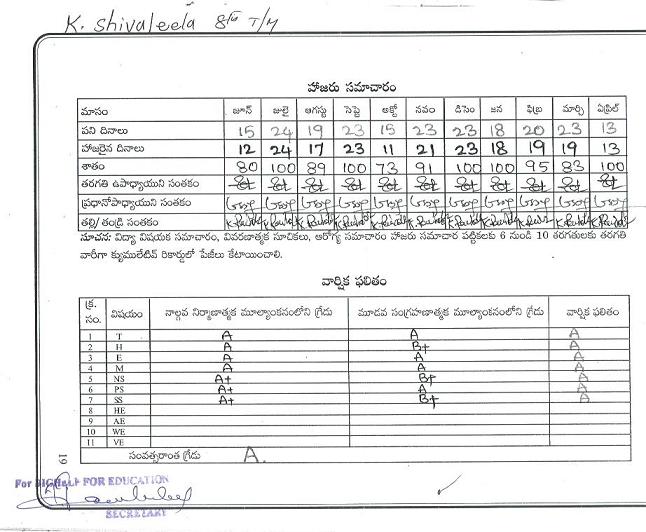 K. Shivaleela 8th T/M
హాజరు సమాచారం
మాసం జూన్ జులై ఆగస్టు సెప్టె అక్టో నవం డిసెం జన ఫిబ్ర మార్చి ఏప్రిల్
పని దినాలు 15 24 19 23 15 23 23 18 20 23 13
హాజరైన దినాలు 12 24 17 23 11 21 23 18 19 19 13
శాతం 80 100 89 100 73 91 100 100 95 83 100
తరగతి ఉపాధ్యాయుని సంతకం
ప్రధానోపాధ్యాయుని సంతకం
తల్లి/తండ్రి సంతకం
సూచన: విద్యా విషయక సమాచారం, వివరణాత్మక సూచికలు, ఆరోగ్య సమాచారం హాజరు సమాచార పట్టికలకు 6 నుండి 10 తరగతులకు తరగతి
వారీగా క్యుములేటివ్ రికార్డులో పేజీలు కేటాయించాలి.
వార్షిక ఫలితం
క్ర. సం. విషయం నాల్గవ నిర్మాణాత్మక మూల్యాంకనంలోని గ్రేడు మూడవ సంగ్రహణాత్మక మూల్యాంకనంలోని గ్రేడు వార్షిక ఫలితం
1 T A A A
2 H A B+ A
3 E A A A
4 M A A A
5 NS A+ B+ A
6 PS A+ A A
7 SS A+ B+ A
8 HE
9 AE
10 WE
11 VE
సంవత్సరాంత గ్రేడు A.
19
For FOR EDUCATION
SECRETARY